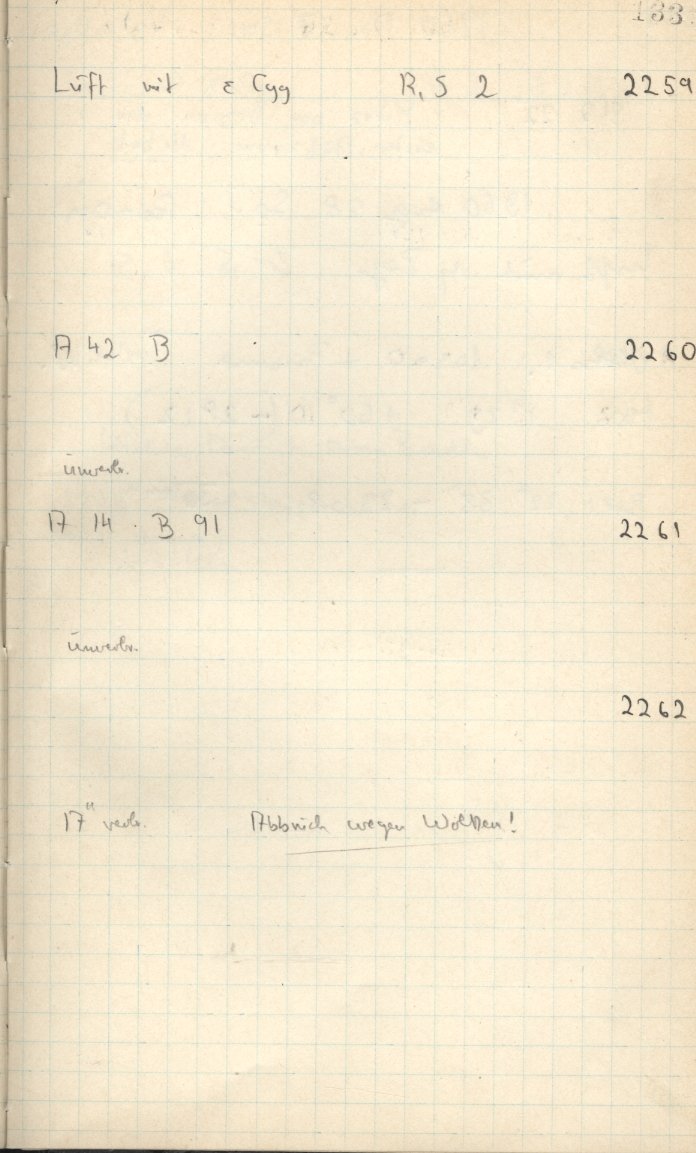 133
Luft mit ε Cyg R, S 2 2259
A 42 B 2260
unverbr.
A 14 B 91 2261
unverbr.
2262
17" verbr. Abbruch wegen Wolken!